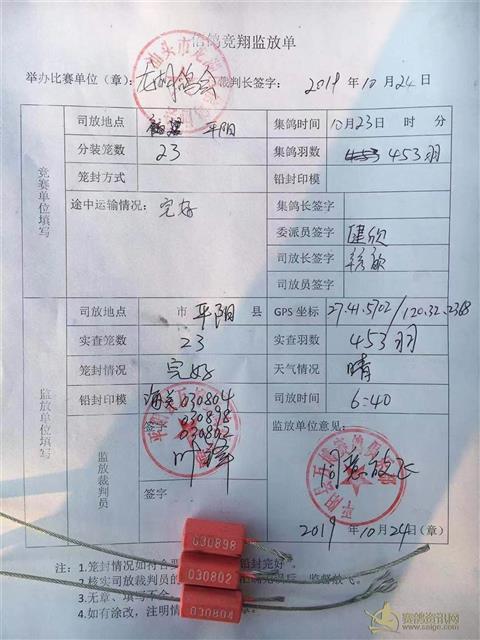 信鸽竞翔监放单
汕头市龙湖
举办比赛单位（章）：龙湖鸽会 裁判长签字： 2019年10月24日
司放地点 平阳 集鸽时间 10月23日 时 分
分装笼数 23 集鸽羽数 453羽
笼封方式 铅封印模
途中运输情况：完好 集鸽长签字
委派员签字
司放长签字
司放员签字
竞赛单位填写
司放地点 市 平阳 县 GPS坐标 27.41.5702/120.32.2368
实查笼数 23 实查羽数 453羽
笼封情况 完好 天气情况 晴
铅封印模 海关030804 司放时间 6:40
030898
030802
监放单位填写
监放裁判员
签字
签字
监放单位意见：
同意放飞
2019年10月24日（章）
注：1.笼封情况如符合 铅封完好”。
2.核实司放裁判员的 监督放飞。
3.无章、填写不全
4.如有涂改，注明情
030898
030802
030804
赛鸽资讯网
www.saige.com